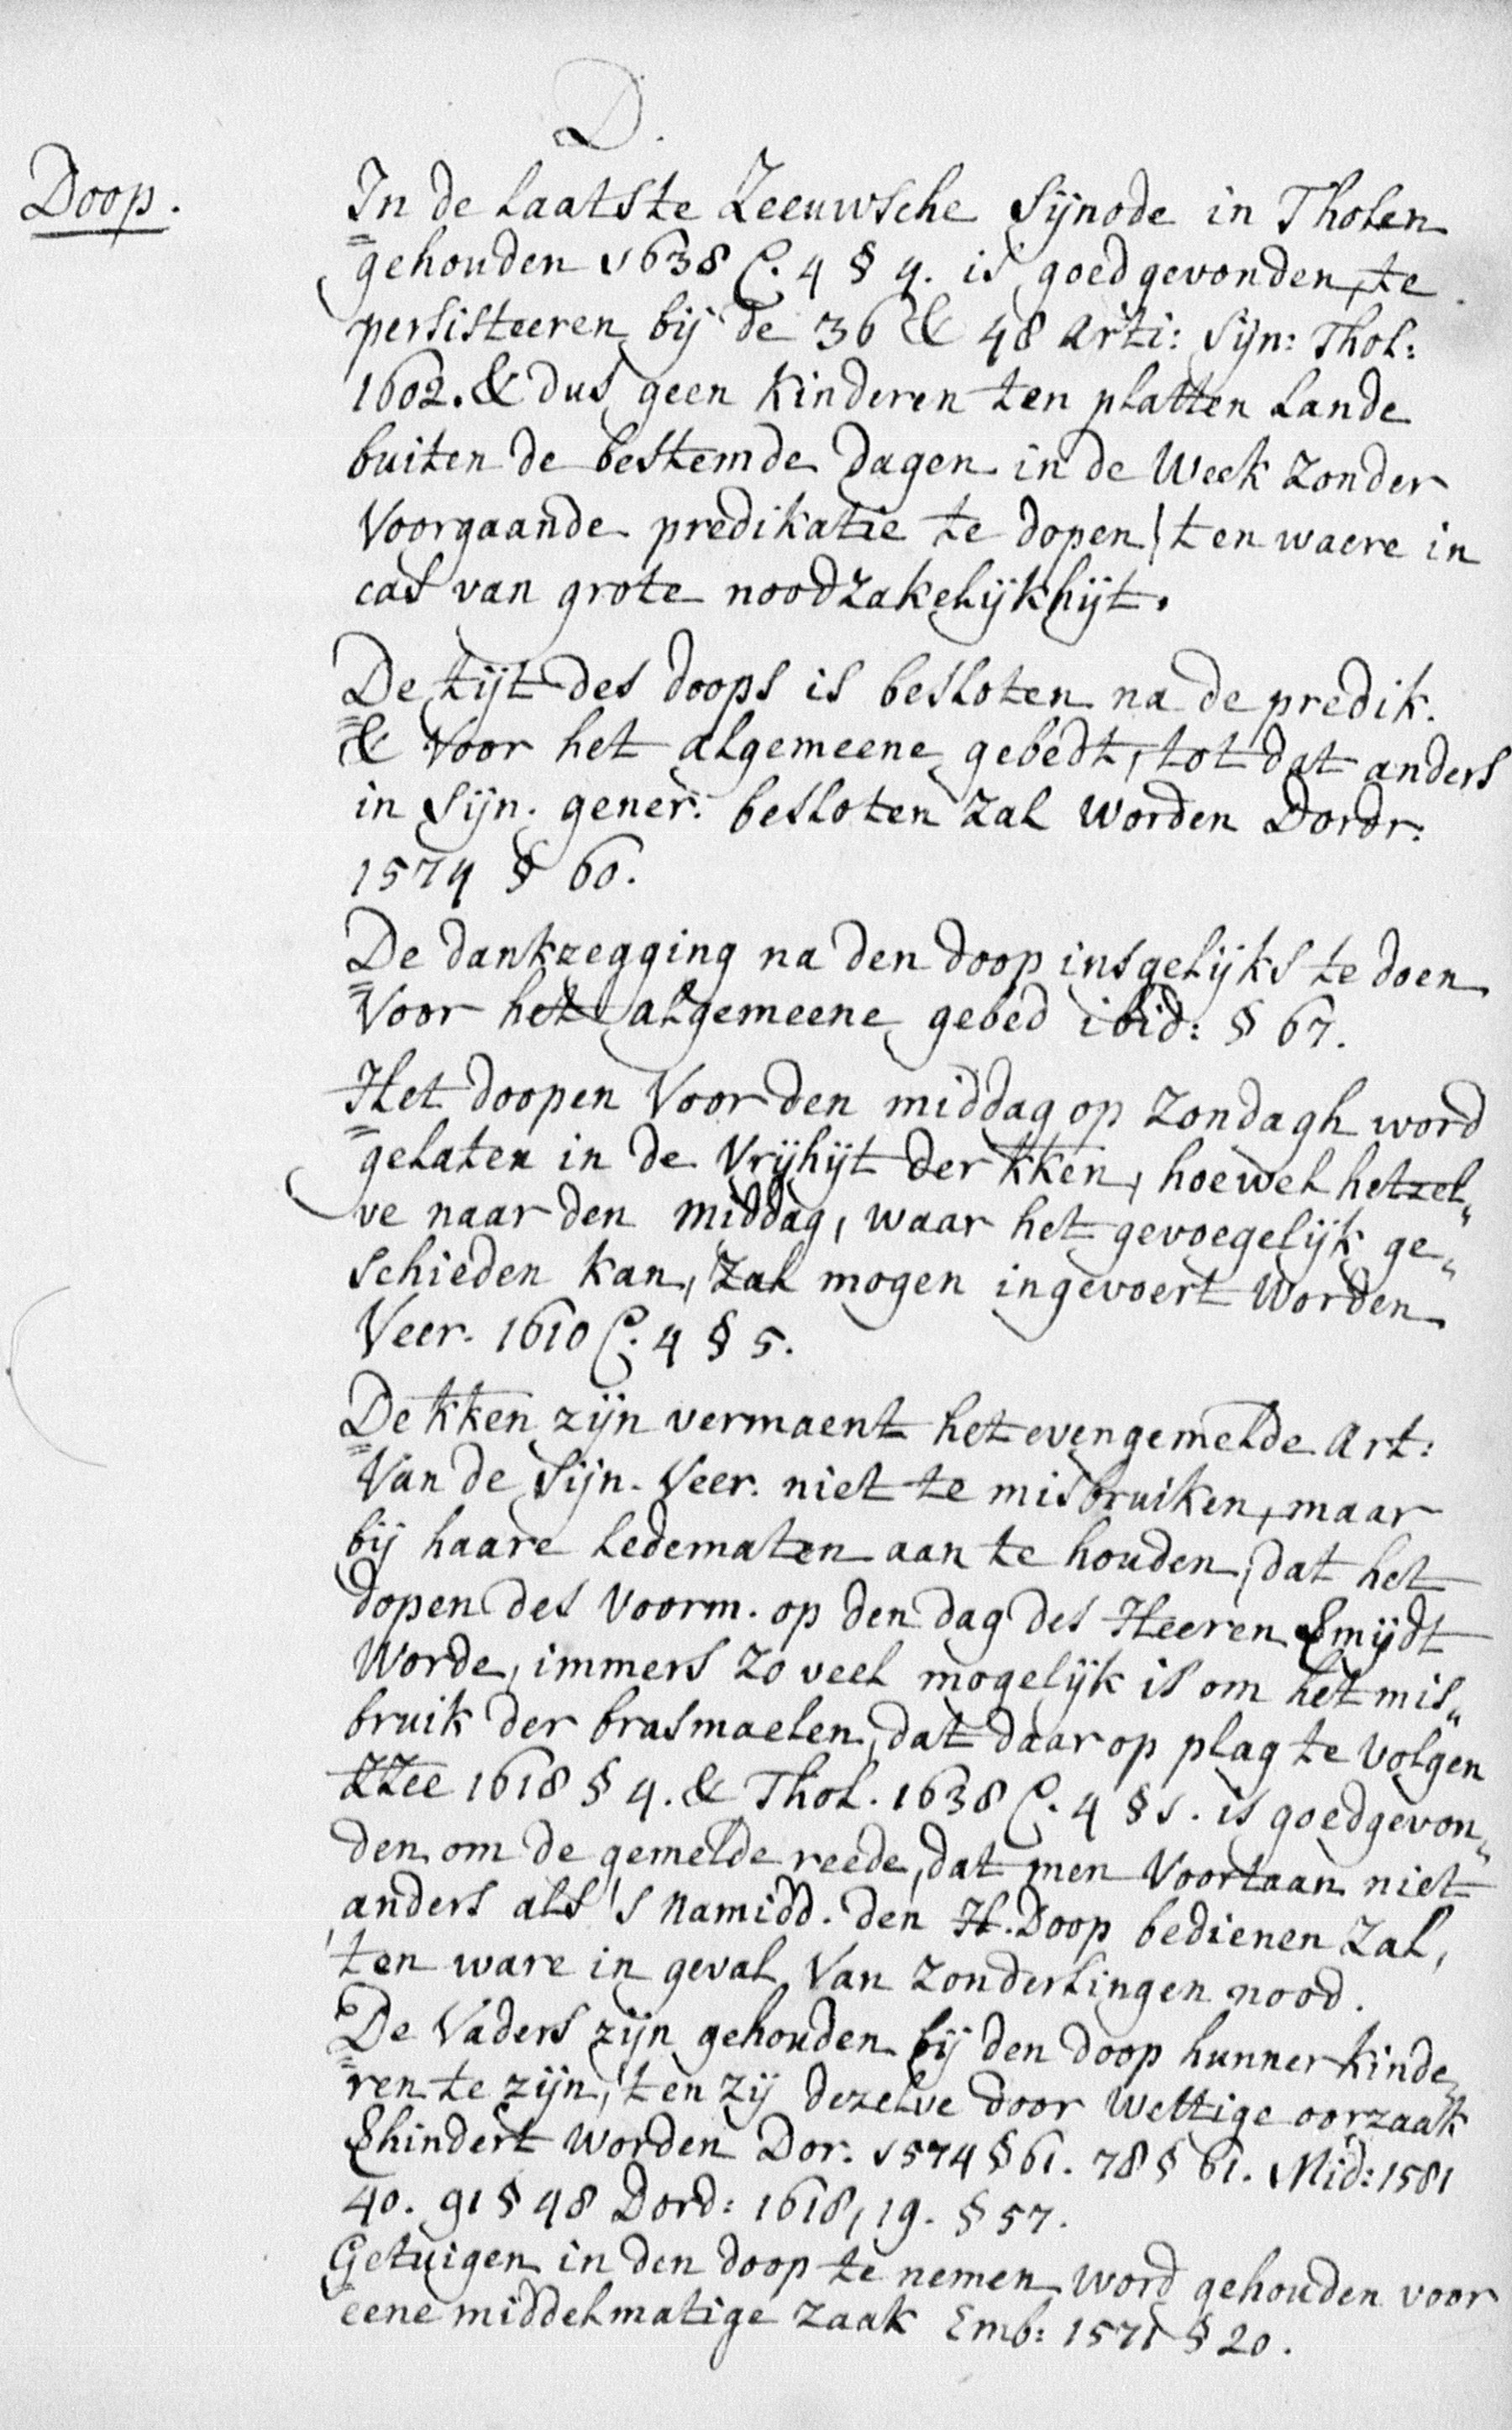 D.
Doop.
In de laatste Zeeuwsche Sijnode in Tholen
gehouden 1638 C. 4 § 4. is goedgevonden, te
persisteeren bij de 36 & 48 Arti: Sijn: Thol:
1602. & dus geen kinderen ten platten Lande
buiten de bestemde dagen in de Week zonder
Voorgaande predikatie te dopen, 't en waere in
cas van grote noodzakelijkhijt.
De tijt des doops is besloten na de predik.
& voor het algemeene gebedt, tot dat anders
in Sijn. gener: besloten zal worden Dordr:
1574 § 60.
De dankzegging na den doop insgelijks te doen
Voor het algemeene gebed ibid: § 67.
Het doopen Voor den middag op Zondagh word
gelaten in de Vrijhijt der kken, hoewel hetzel„
ve naar den middag, waar het gevoegelijk ge„
schieden kan, zal mogen ingevoert worden
Veer. 1610 C. 4 § 5.
De kken zijn vermaent het evengemelde Art:
Van de Sijn. Veer. niet te misbruiken, maar
bij haare Ledematen aan te houden, dat het
dopen des Voorm. op den dag des Heeren Emijdt
Worde, immers zo veel mogelijk is om het mis„
bruik der brasmaelen, dat daar op plag te volgen
ZZee 1618 § 4. & Thol. 1638 C. 4 § 5. is goedgevon„
den om de gemelde reede, dat men Voortaan niet
anders als 's Namidd. den H. Doop bedienen zal,
'ten ware in geval Van Zonderlingen nood.
De Vaders zijn gehouden bij den doop hunner kinde„
ren te zijn, 't en zij dezelve door wettige oorzaak
Ehindert worden Dor. 1574 § 61. 78 § 61. Mid: 1581
40. 91 § 48 Dord: 1618, 19. § 57.
Getuigen in den doop te nemen word gehouden voor
eene middelmatige zaak Emb: 1571 § 20.